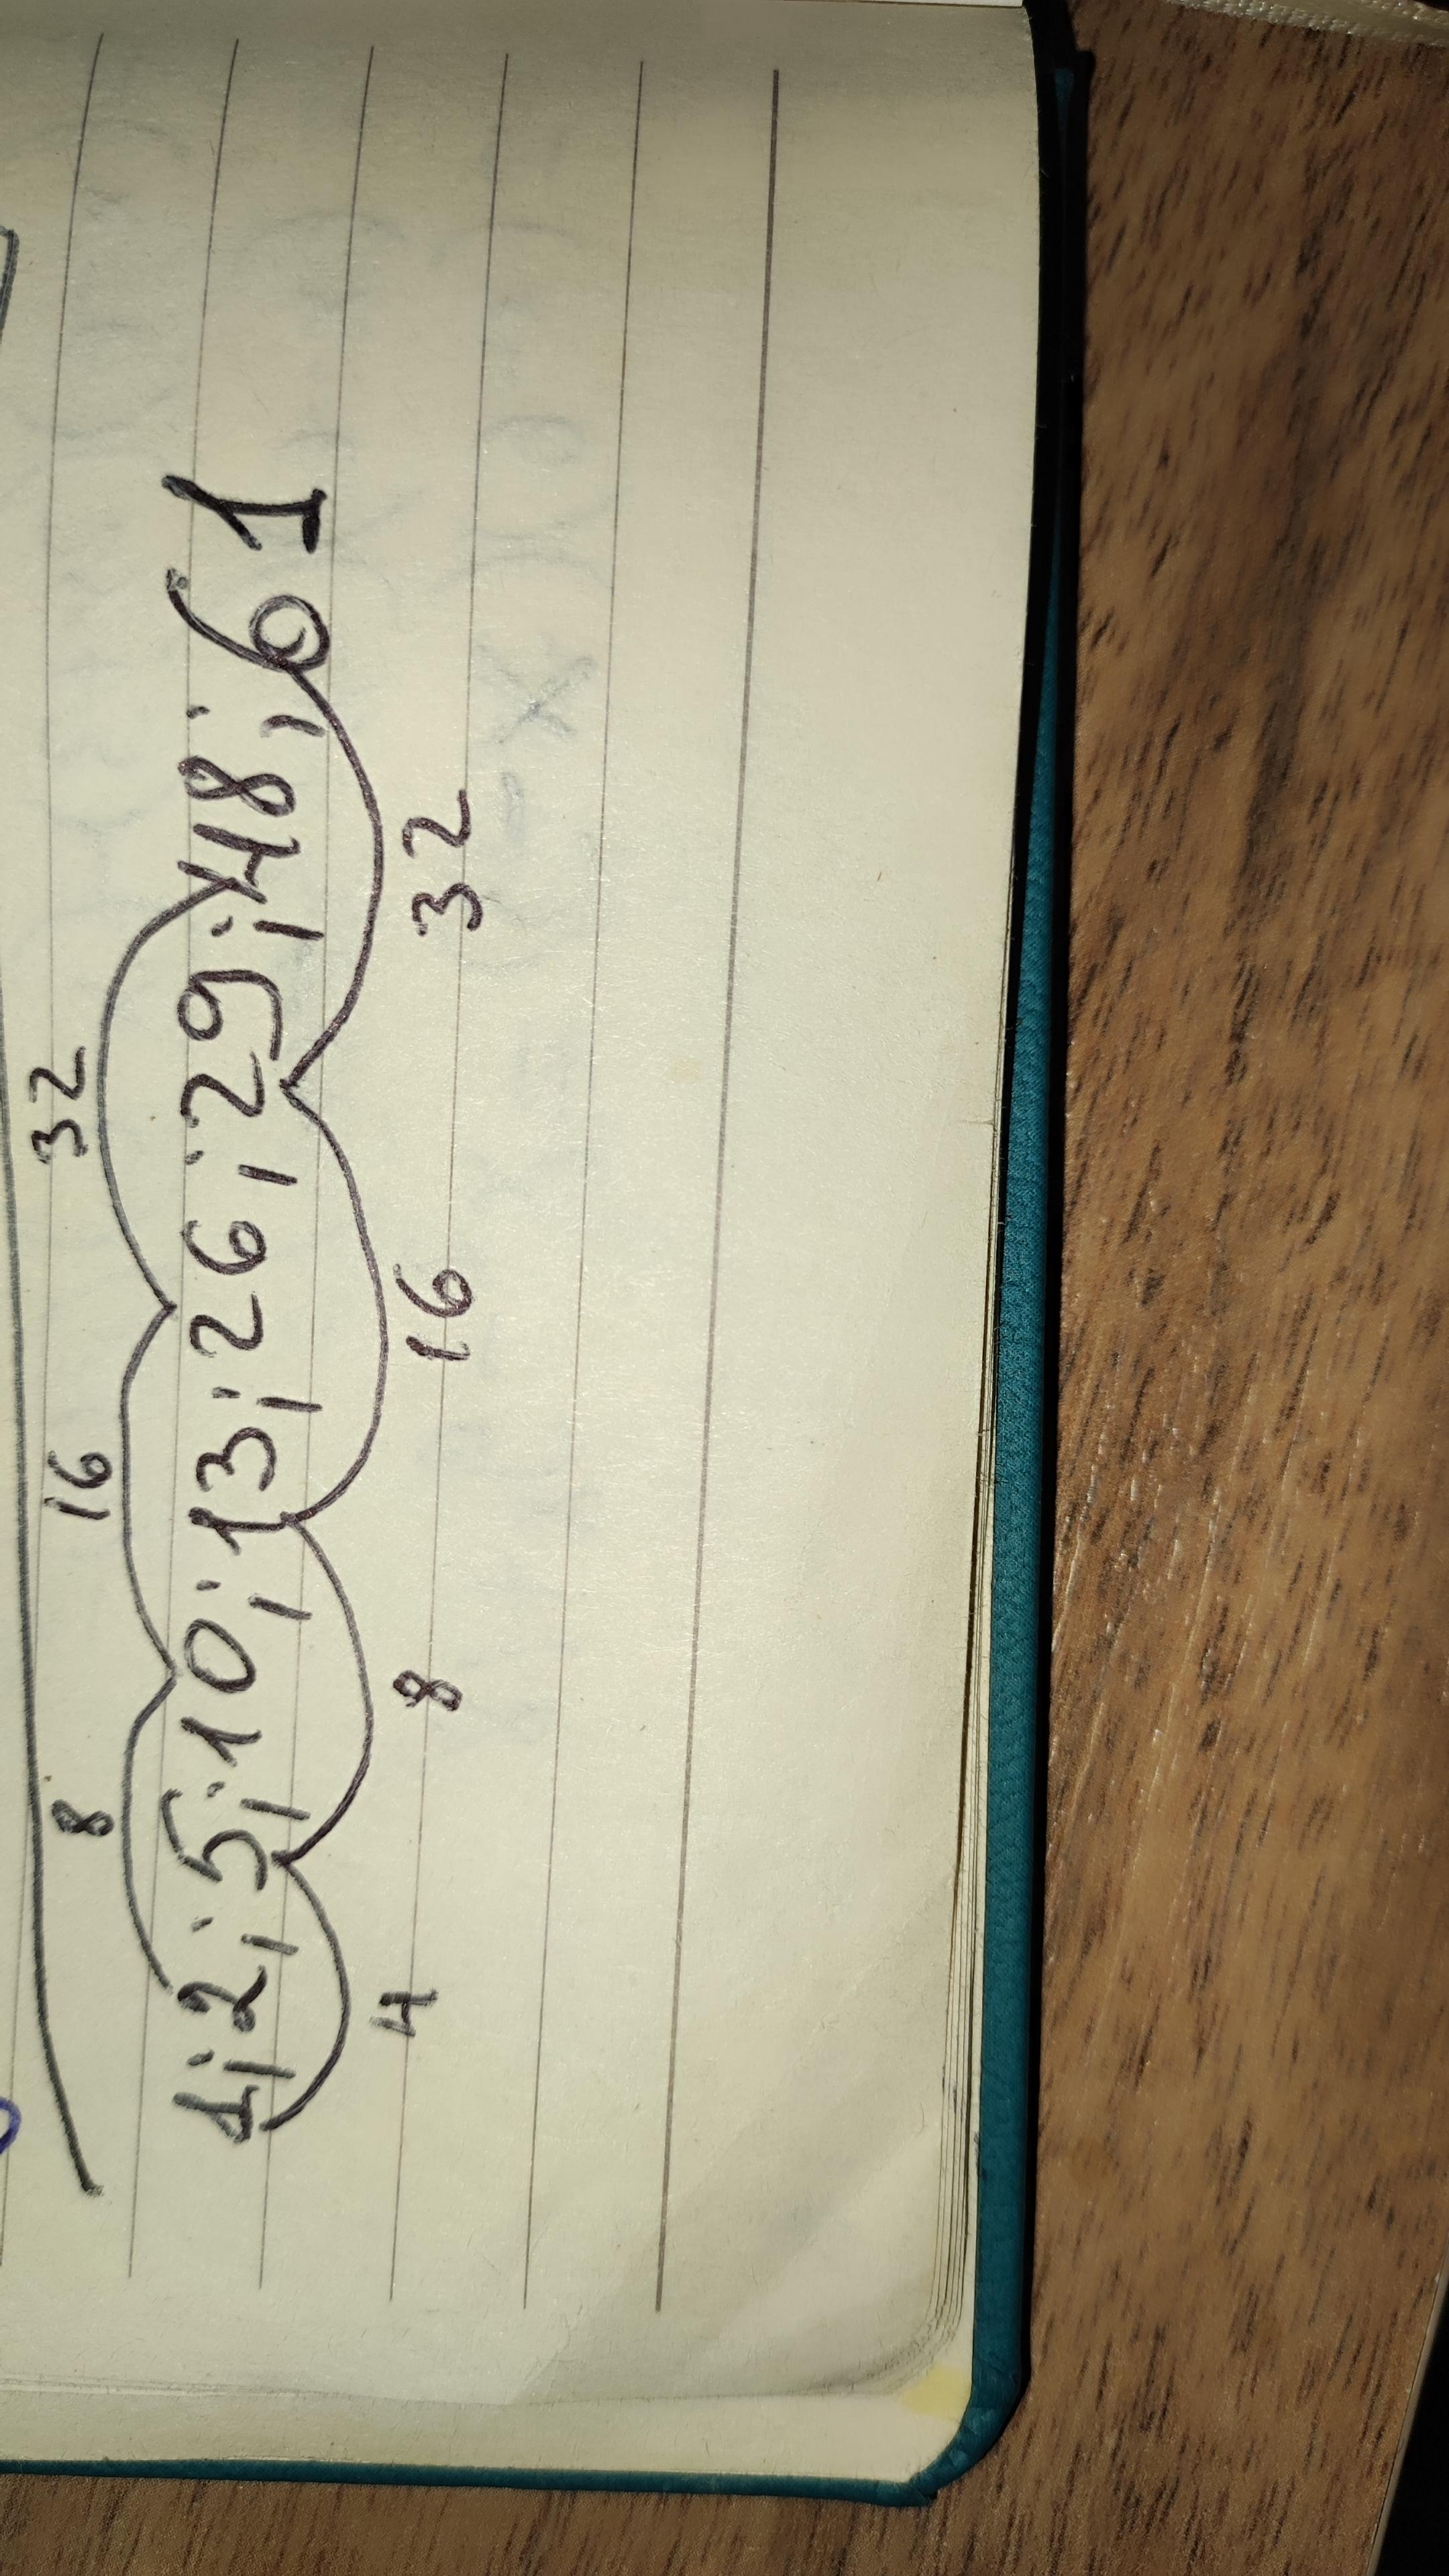 8 16 32
1; 2; 5; 10; 13; 26; 29; 48; 61
4 8 16 32